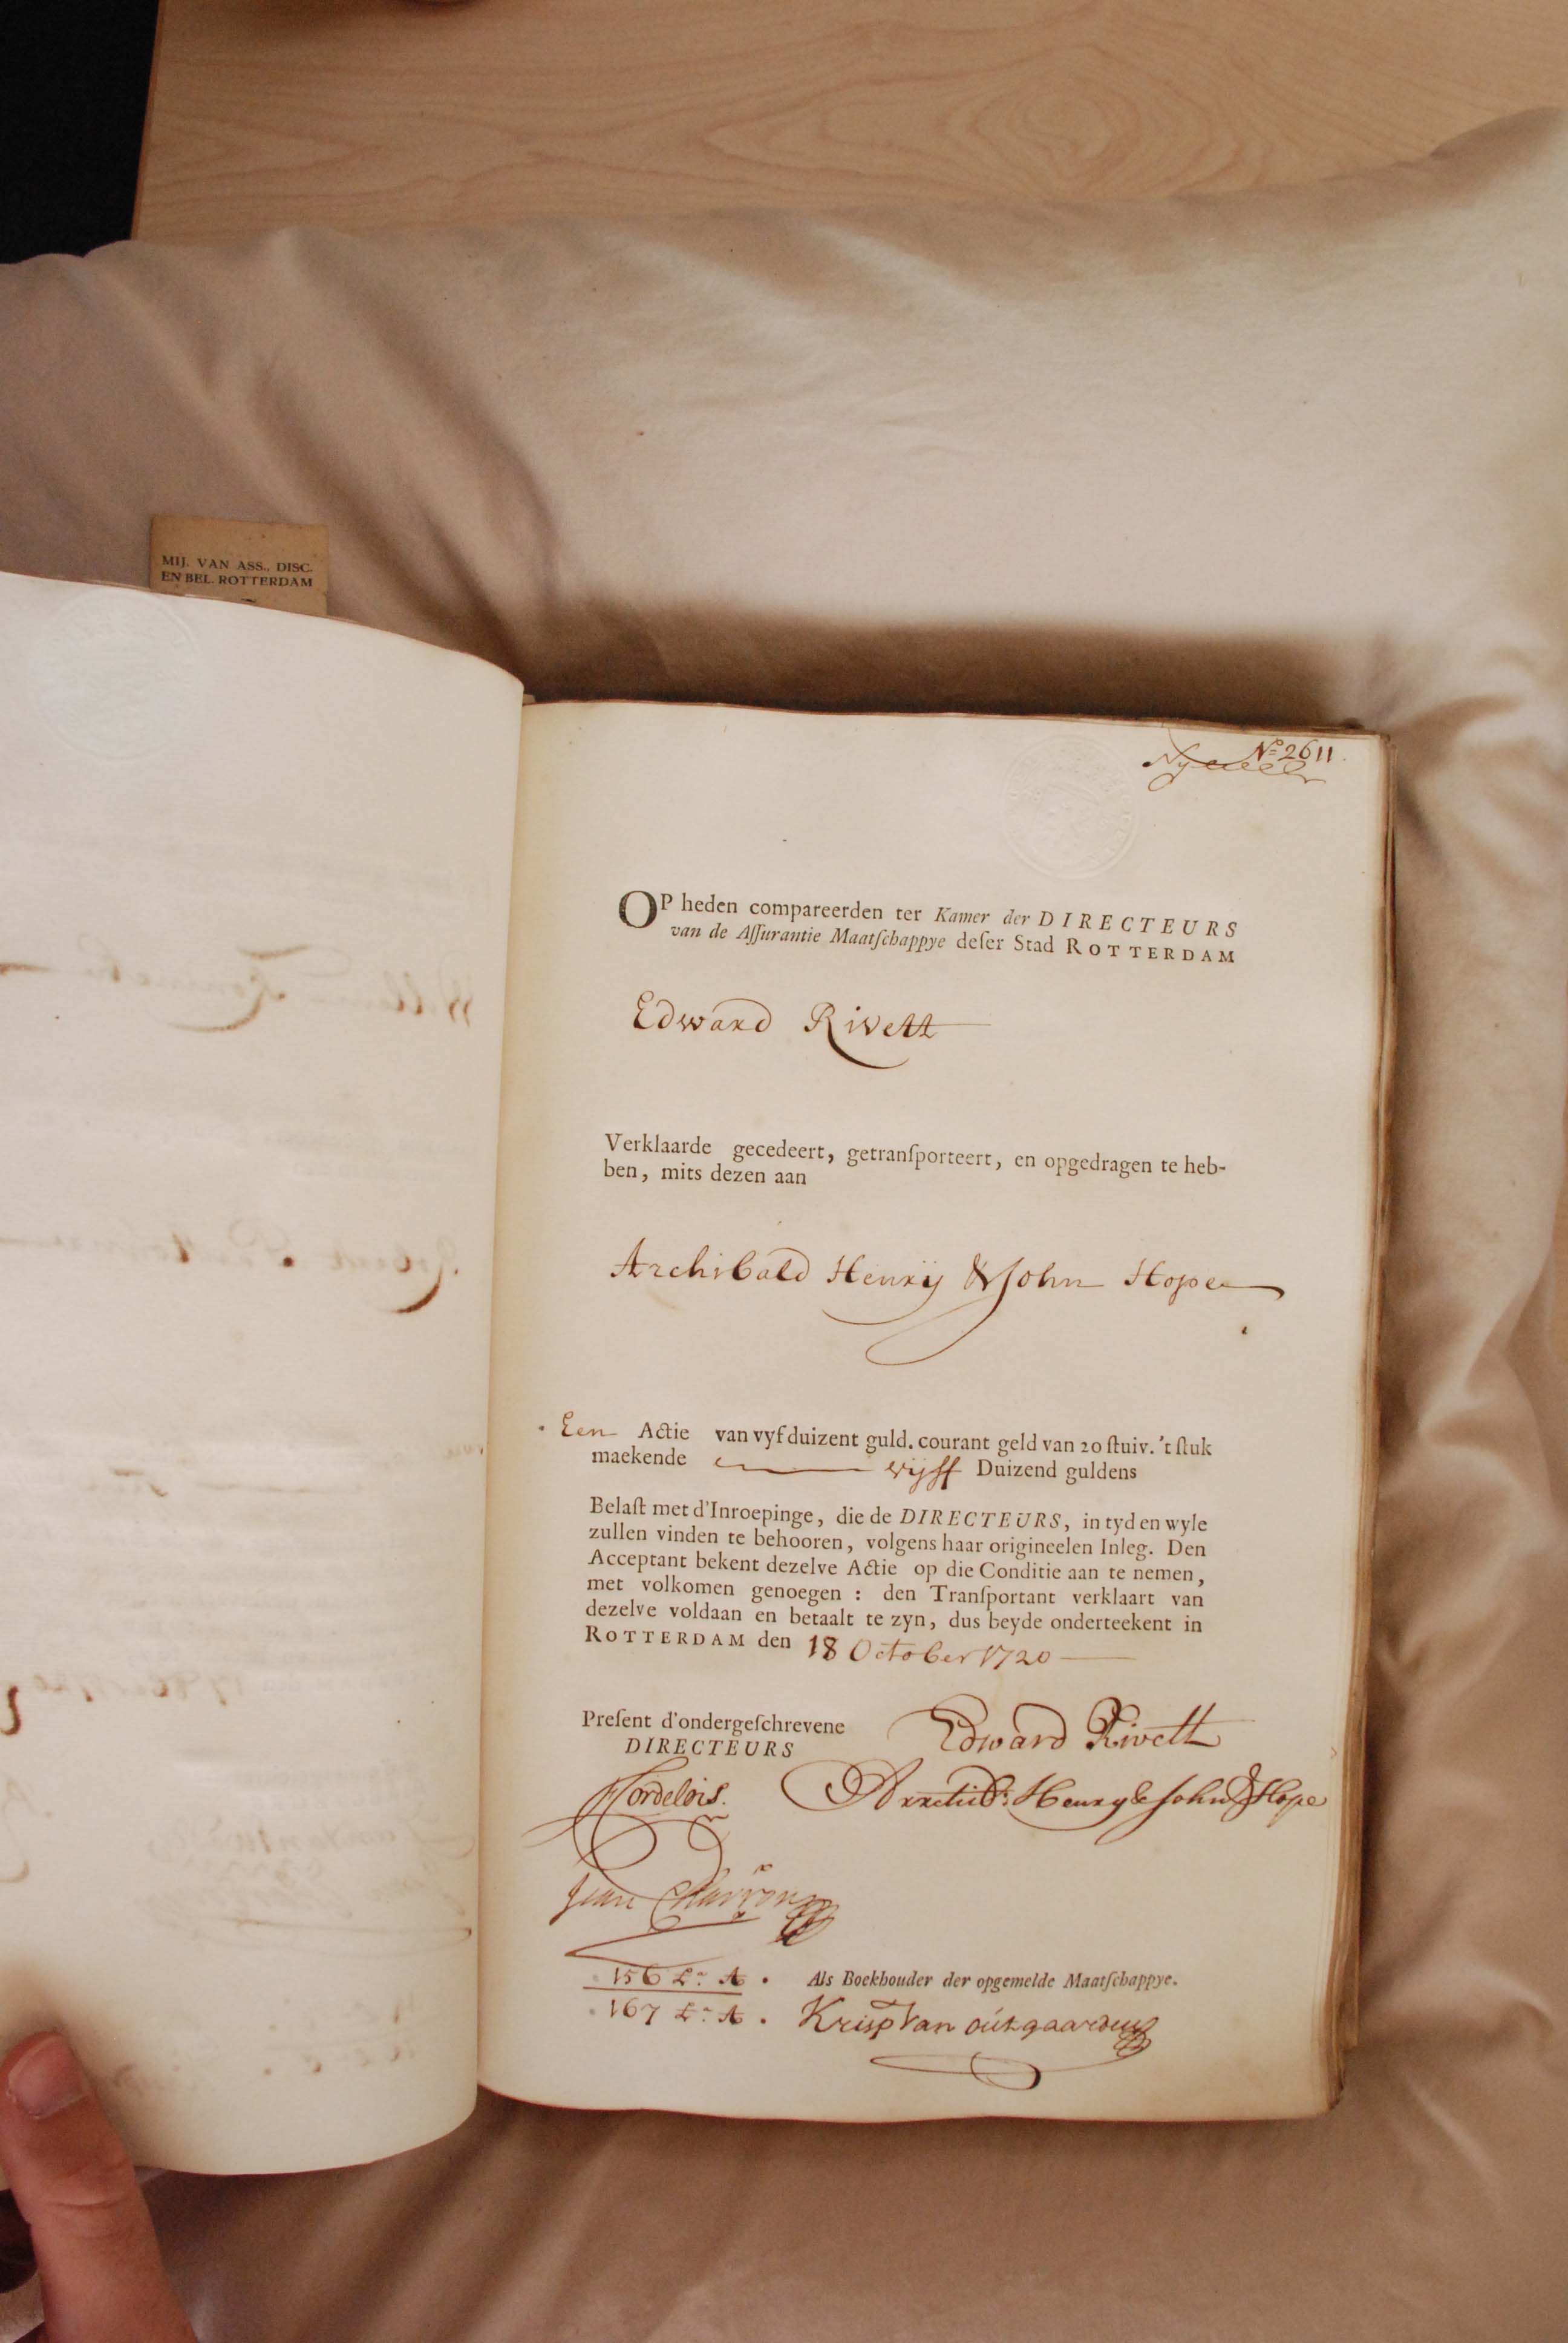 MIJ. VAN ASS., DISC.
EN BEL. ROTTERDAM
No 2611.
OP heden compareerden ter Kamer der DIRECTEURS
van de Aſſurantie Maatſchappye deſer Stad ROTTERDAM
Edward Rivett
Verklaarde gecedeert, getranſporteert, en opgedragen te heb-
ben, mits dezen aan
Archibald Henrÿ & John Hope
Een Actie van vyf duizent guld. courant geld van 20 ſtuiv. 't ſtuk
maekende vijff Duizend guldens
Belaſt met d'Inroepinge, die de DIRECTEURS, in tyd en wyle
zullen vinden te behooren, volgens haar origineelen Inleg. Den
Acceptant bekent dezelve Actie op die Conditie aan te nemen,
met volkomen genoegen : den Tranſportant verklaart van
dezelve voldaan en betaalt te zyn, dus beyde onderteekent in
ROTTERDAM den 18 October 1720
Preſent d'ondergeſchrevene
DIRECTEURS
Edward Rivett
Henry & John Hope
156 Lr A.
167 Lr A.
Als Boekhouder der opgemelde Maatſchappye.
Krisp Van outgaarden